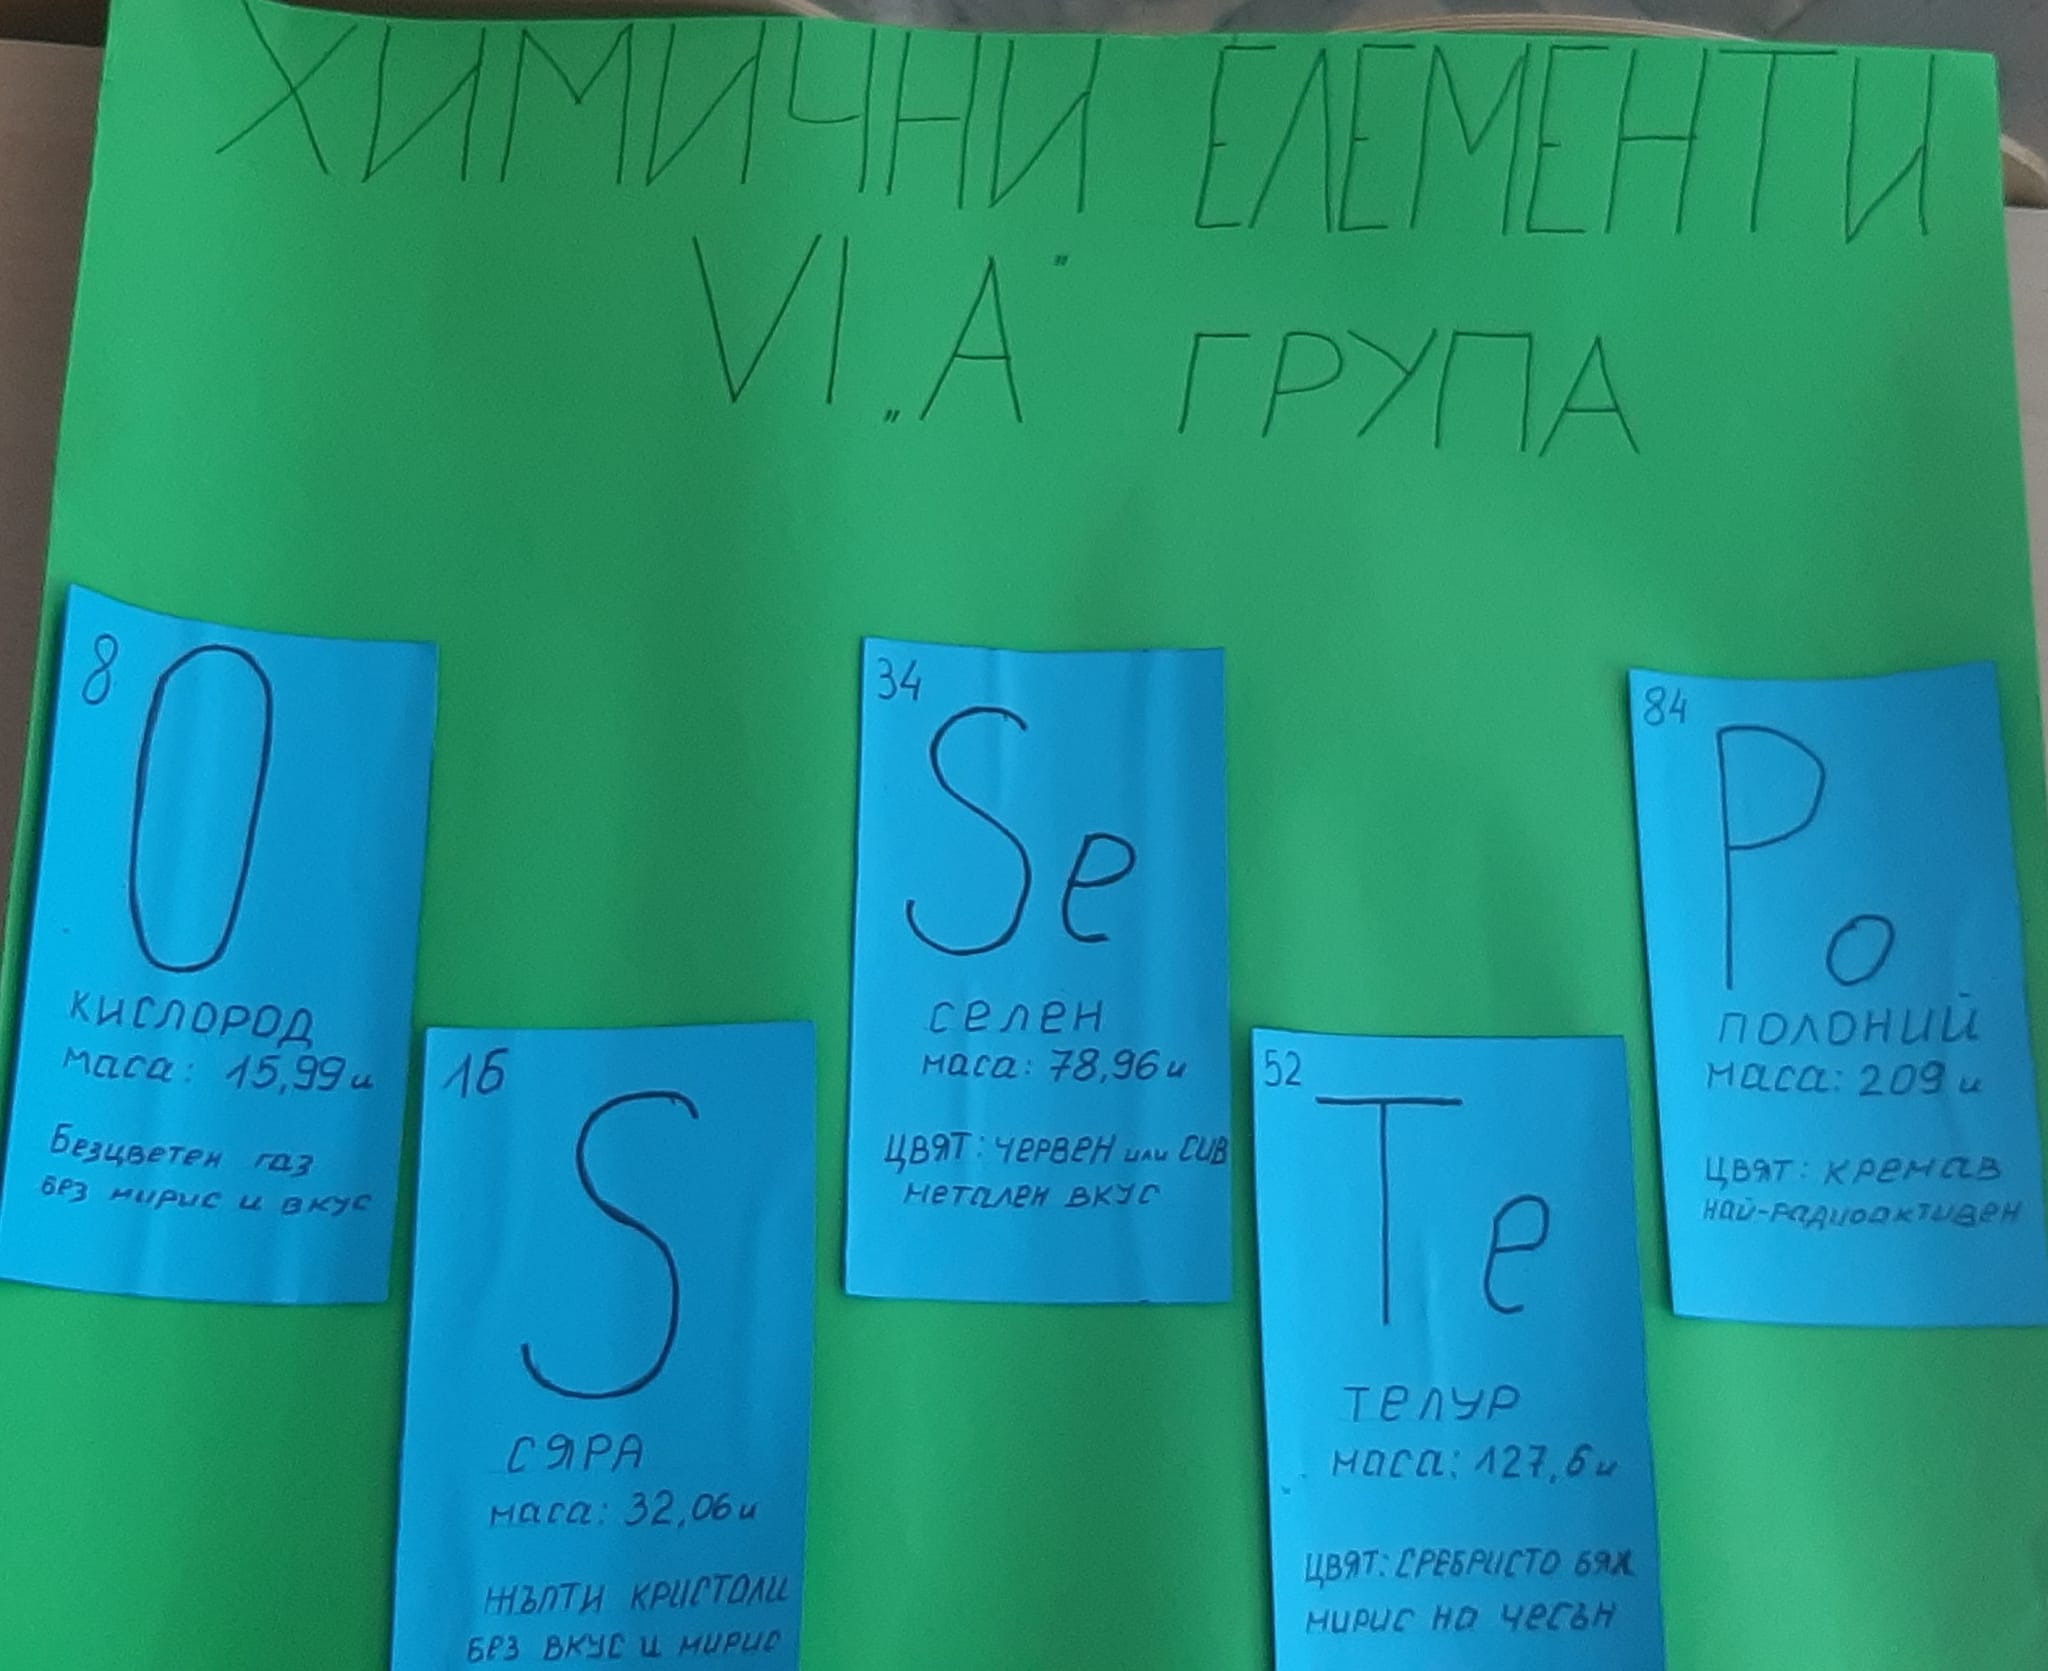 ХИМИЧНИ ЕЛЕМЕНТИ
VI „А“ ГРУПА
8
O
КИСЛОРОД
маса: 15,99 u
Безцветен газ
без мирис и вкус
16
S
СЯРА
маса: 32,06 u
ЖЪЛТИ КРИСТАЛИ
БЕЗ ВКУС И МИРИС
34
Se
СЕЛЕН
маса: 78,96 u
ЦВЯТ: ЧЕРВЕН или СИВ
МЕТАЛЕН ВКУС
52
Te
ТЕЛУР
маса: 127,6 u
ЦВЯТ: СРЕБРИСТО БЯЛ
МИРИС НА ЧЕСЪН
84
Po
ПОЛОНИЙ
маса: 209 u
ЦВЯТ: КРЕМАВ
най-радиоактивен